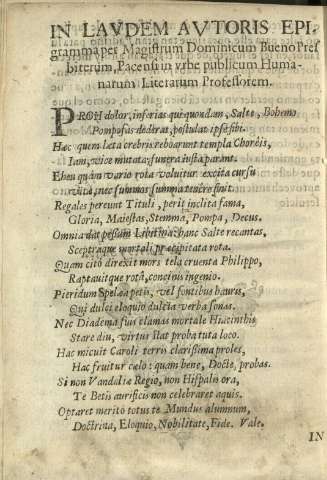 IN LAVDEM AVTORIS EPI-
gramma per Magistrum Dominicum Bueno Pres
biterum, Pacensi in vrbe publicum Huma-
narum Literarum Professorem.
PROH dolor, inferias qui quondam, Salte, Bohemo
Pomposus dederas, postulat ipse sibi.
Hac quem læta crebris reboarunt templa Choreis,
Iam, vice mutata, funera iusta parant.
Eheu quàm vario rota voluitur excita cursu
vitæ, nec summos summa tenere sinit.
Regales pereunt Tituli, perit inclita fama,
Gloria, Maiestas, Stemma, Pompa, Decus.
Omnia dat pessum Libitina: hanc Salte recantas,
Sceptraque mortali præcipitata rota.
Quam citò direxit mors tela cruenta Philippo,
Raptauitque rotâ, concinis ingenio.
Pieridum Spelæa petis, vel fontibus hauris,
Qui dulci eloquio dulcia verba sonas.
Nec Diadema fuis clamas mortale Hiacinthis
Stare diu, virtus stat probatuta loco.
Hac micuit Caroli terris clarissima proles,
Hac fruitur cælo: quam bene, Docte, probas.
Si non Vandaliæ Regio, non Hispalis ora,
Te Betis aurificis non celebraret aquis.
Optaret meritò totus te Mundus alumnum,
Doctrina, Eloquio, Nobilitate, Fide. Vale.
IN